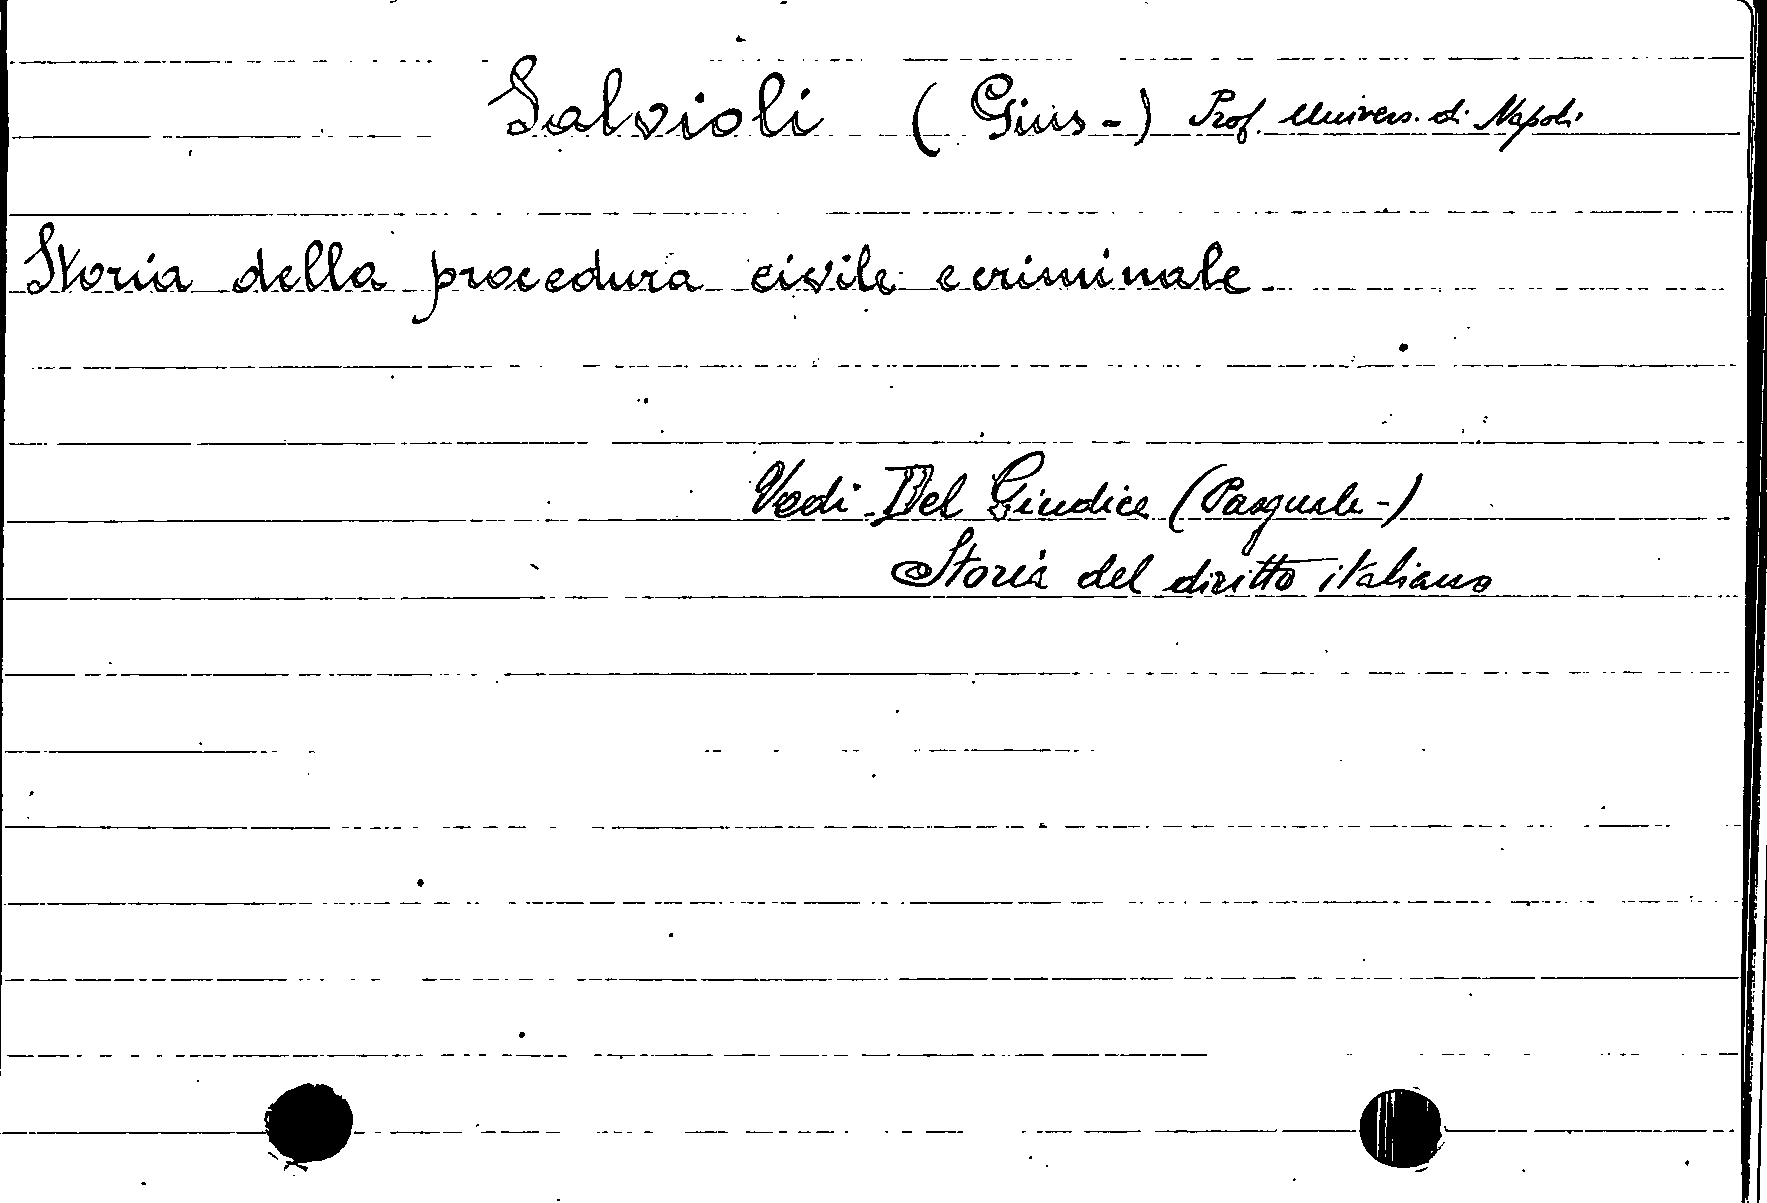 Salvioli (Gius-) Prof. Univers. di Napoli
Storia della procedura civile e criminale
Vedi Del Giudice (Pasquale-)
Storia del diritto italiano